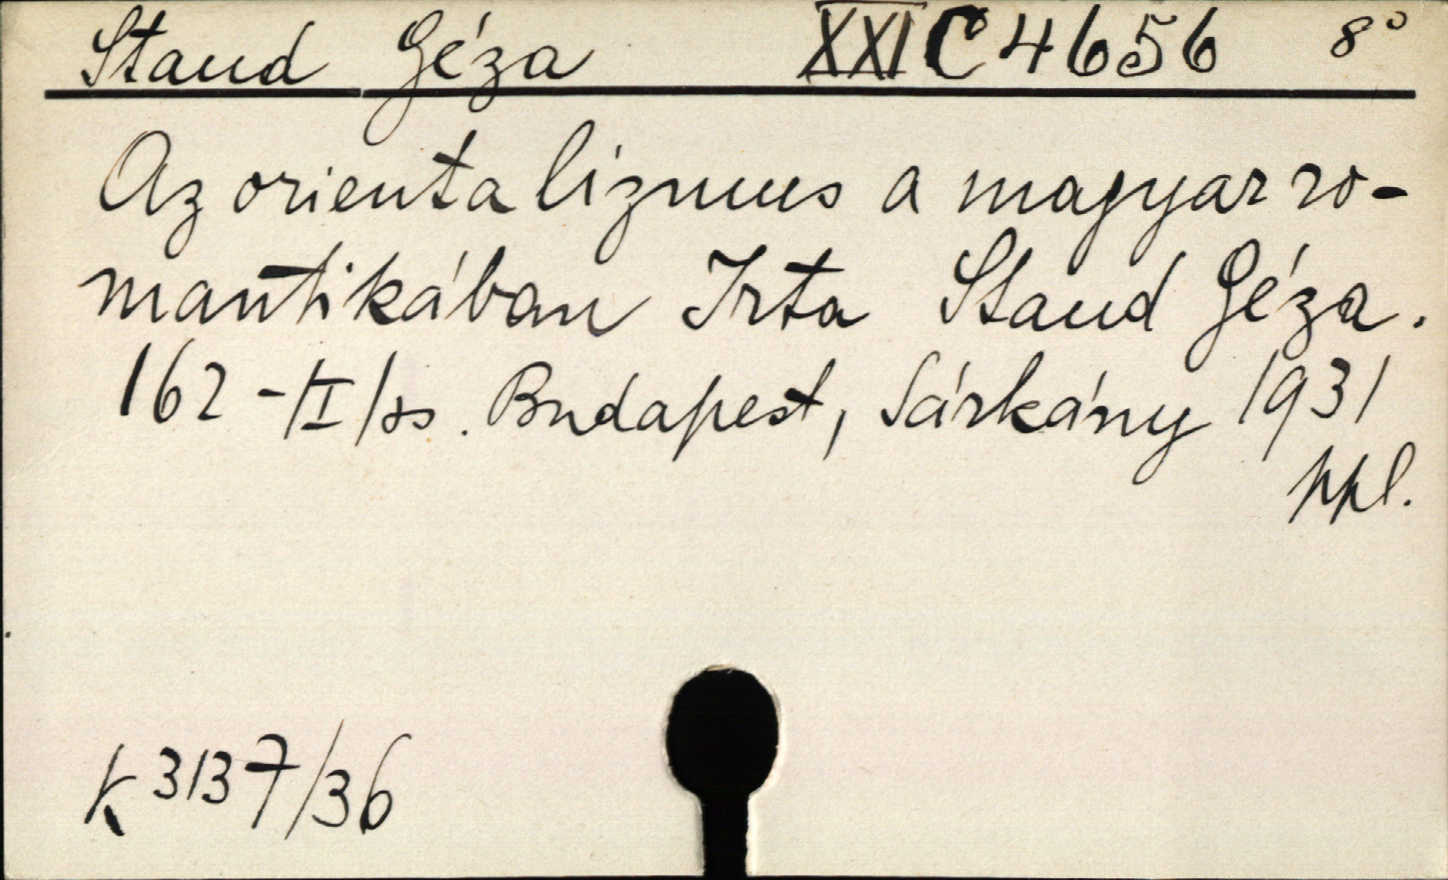 Staud Géza XXI C 4656 8°
Az orientalizmus a magyar ro-
mantikában Irta Staud Géza.
162 -/I/ss. Budapest, Sárkány 1931
ppl.
K 3137/36